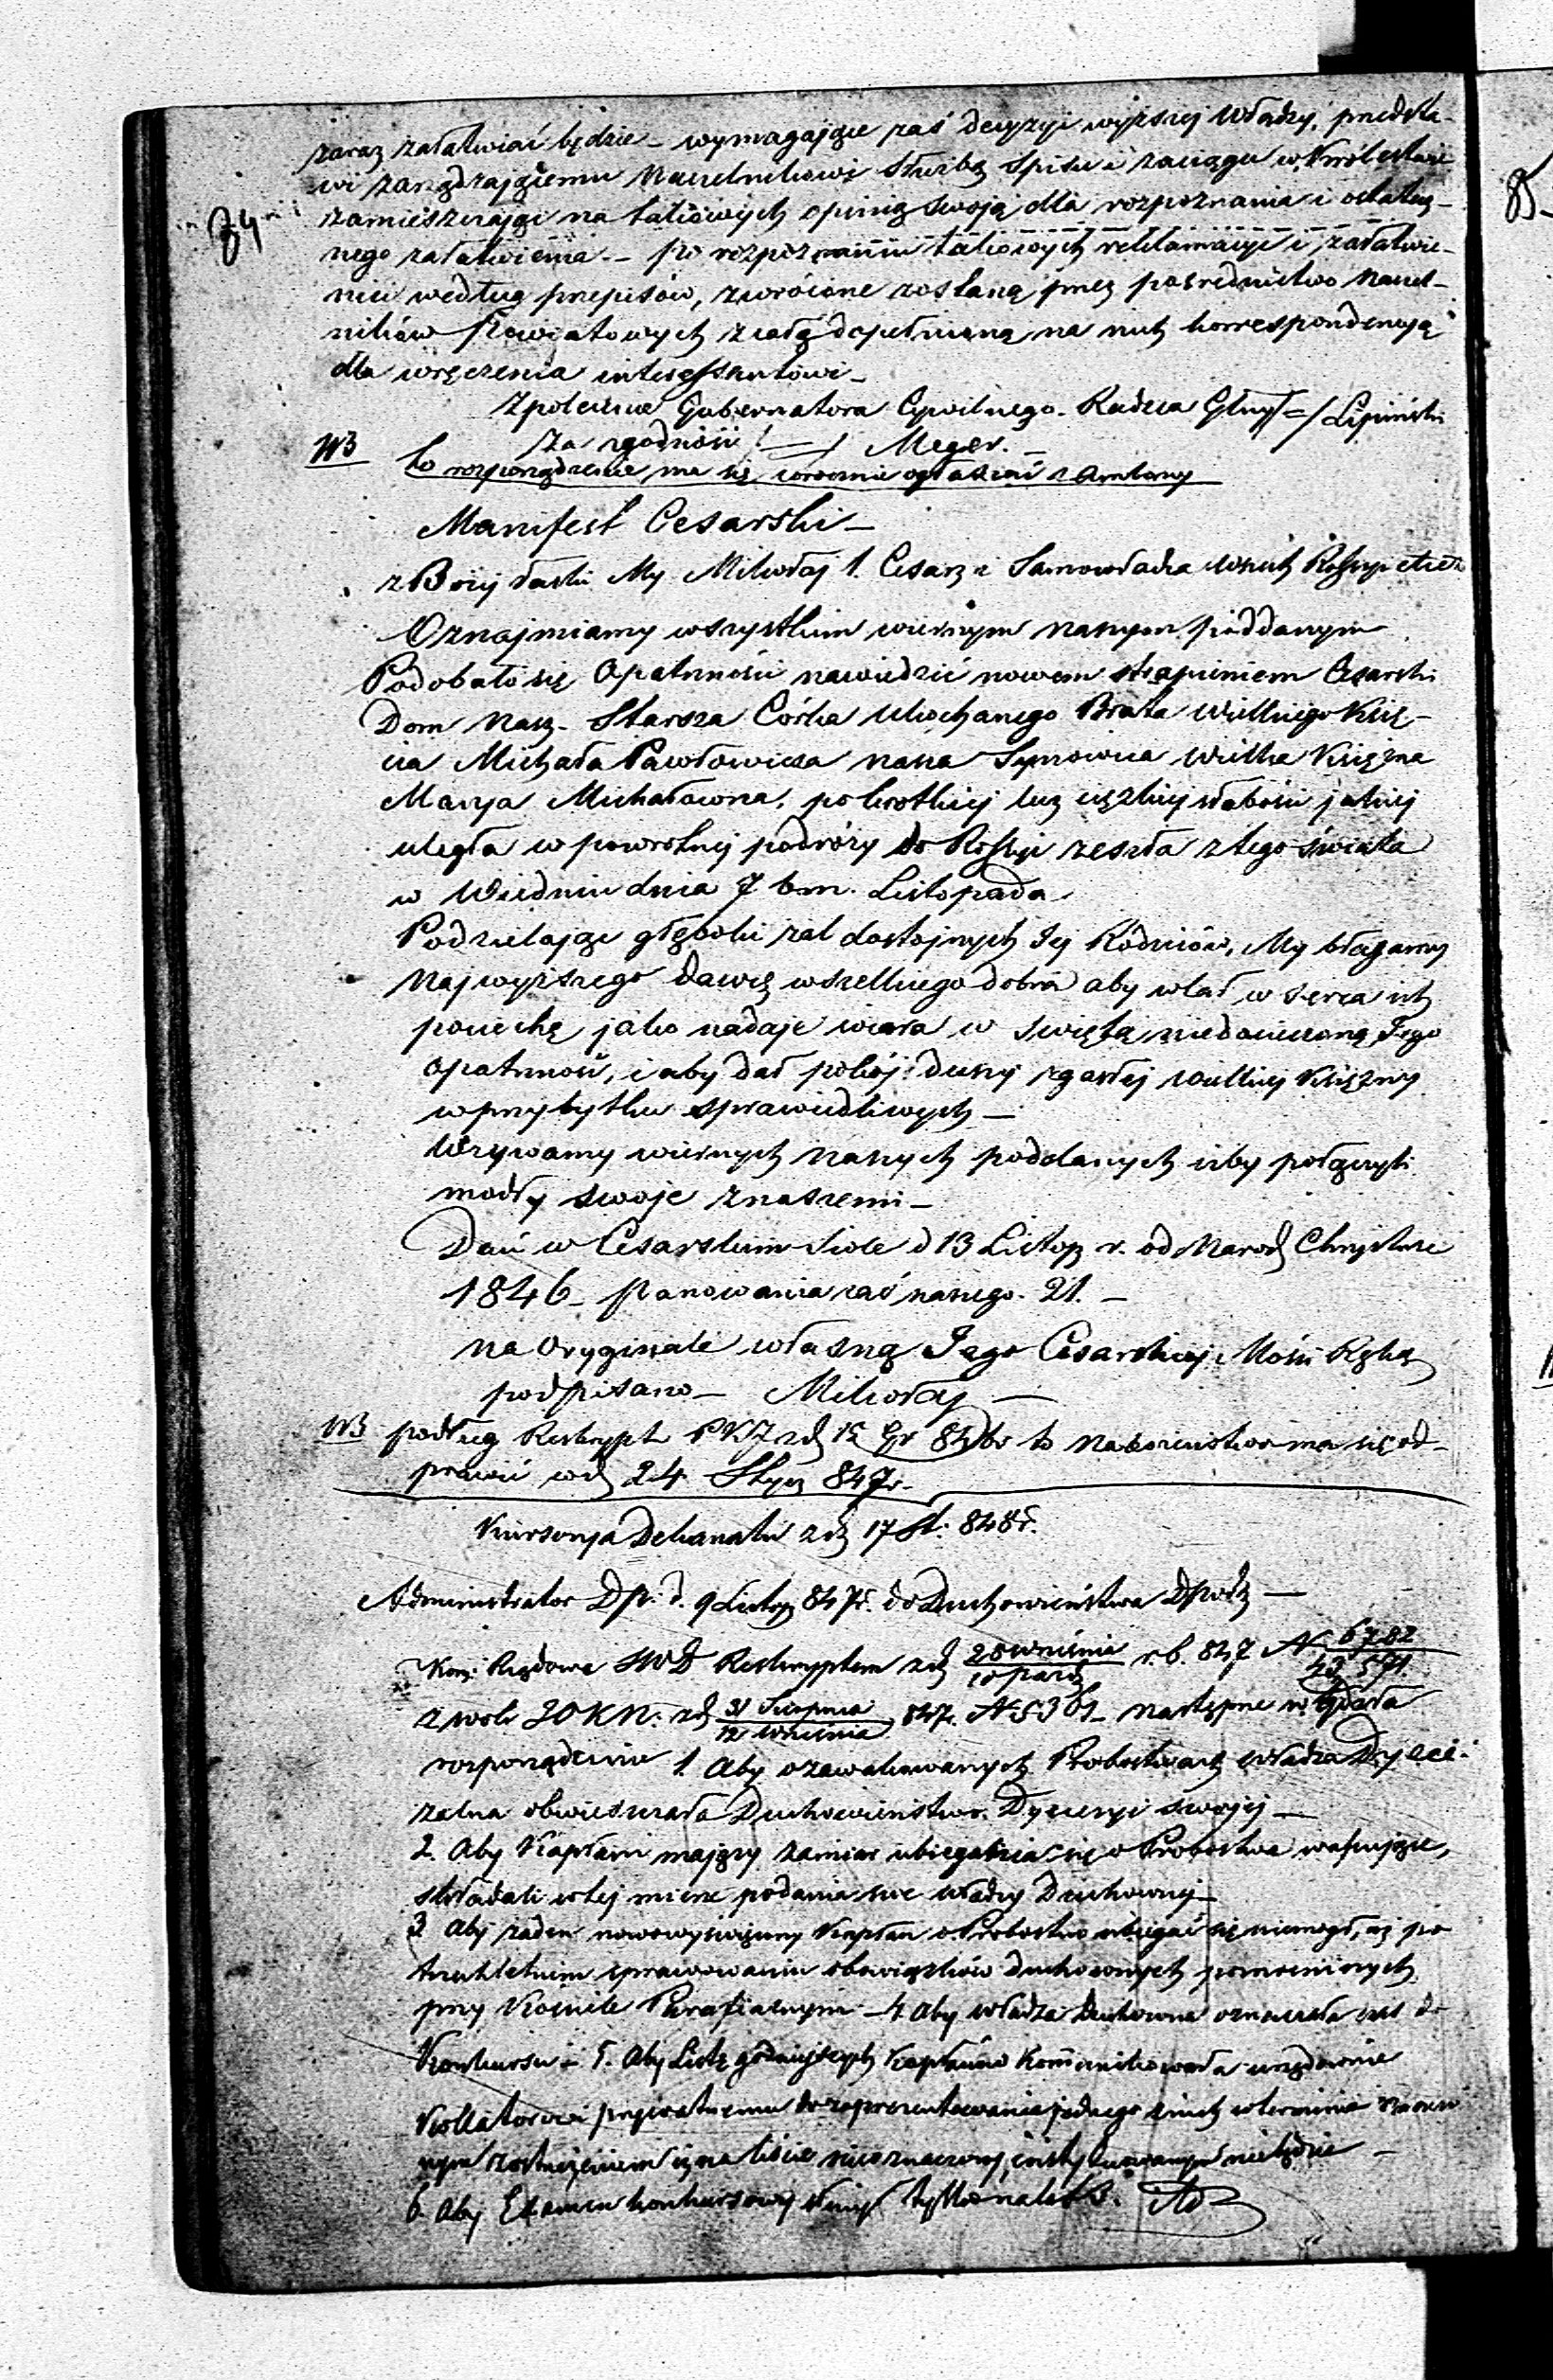 zaraz załatwiać będzie – wymagające zaś decyzyi wyższej Władzy, przedsta-
wi zarządzającemu Naczelnikowi Służbą Spisu i zaciągu w Królestwie
84
zamieszczając na takowych opinię swoją dla rozpoznania i ostatecz-
nego załatwienia – po rozpoznaniu takowych reklamacye i załatwie-
niu według przepisów, zwrócone zostaną przez pośrednictwo Naczel-
ników Powiatowych z całą dopełnioną na nich korrespondencyą
dla wręczenia interessantowi –
Z polecenia Gubernatora Cywilnego. Radzca Głny /=/ Lipiński
Za zgodność /—/ Meger. –
NB to rozporządzenie ma się corocznie ogłaszać z Ambony
Manifest Cesarski –
z Bożej łaski My Mikołaj 1. Cesarz i Samowładca wszech Rossyi etc etc
Oznajmiamy wszystkim wiernym naszym poddanym
Podobało się Opatrzności nawiedzić nowem strapieniem Cesarski
Dom Nasz. Starsza Córka Ukochanego Brata Wielkiego Księ-
cia Michała Pawłowicza nasza Synowica Wielka Księżna
Marya Michałowna, po krótkiej lecz ciężkiej słabości jakiej
uległa w powrotnej podróży do Rossyi zeszła z tego świata
w Wiedniu dnia 7 bm. Listopada.
Podzielając głęboki żal dostojnych Jej Rodziców, My błagamy
Najwyższego Dawcę wszelkiego dobra aby wlał w serca ich
pociechę jako nadaje wiara w świętą niedocieczoną Jego
Opatrzność, i aby dał pokój duszy zgasłej Wielkiej Księżny
w przybytku sprawiedliwych –
Wzywamy wiernych naszych poddanych iżby połączyli
modły swoje z naszemi –
Dan w Cesarskim Siole d 13 Listop r. od Narodz Chrystusa
1846 – panowania zaś naszego 21. –
na Oryginale własną Jego Cesarskiej Mości Ręką
podpisano – Mikołaj –
NB podług Reskrypt z d 15 Gr to Nabożeństwo ma się od-
prawić w d 24 Stycz 847 r.
Kursorya Dekanatu z d 17 St. 848 r.
Administrator Dp. d. 9 Listop 847 r. do Duchowieństwa Dp.
Kom: Rządowa SWD Reskryptem z d 28 Września / 10 Paźd r.b. 847 N. 6782 /
z woli z d 31 Sierpnia / 12 Września 847. N. 5361 – następne wydała
rozporządzenie 1. Aby o zawakowanych Probostwach Władza Dyece-
zalna obwieszczała Duchowieństwo Dyecezyi swojej –
2. Aby Kapłani mający zamiar ubiegania się o Probostwa wakujące,
składali w tej mierze podania swe władzy Duchownej –
3 Aby żaden nowowyświęcony Kapłan o Probostwo ubiegać się niemógł, aż po
trzechletnim sprawowaniu obowiązków duchownych pomocniczych
przy Kościele Parafialnym – 4. Aby władza Duchowna oznaczała czas do
Konkursu – 5. Aby Listę godniejszych Kapłanów Kommunikowała urzędownie
Kollatorowi prywatnemu do zaprezentowania jednego z nich w terminie
z ostrzeżeniem iż na liście nieoznaczony, instytuowanym niebędzie –
6. Aby Examen konkursowy